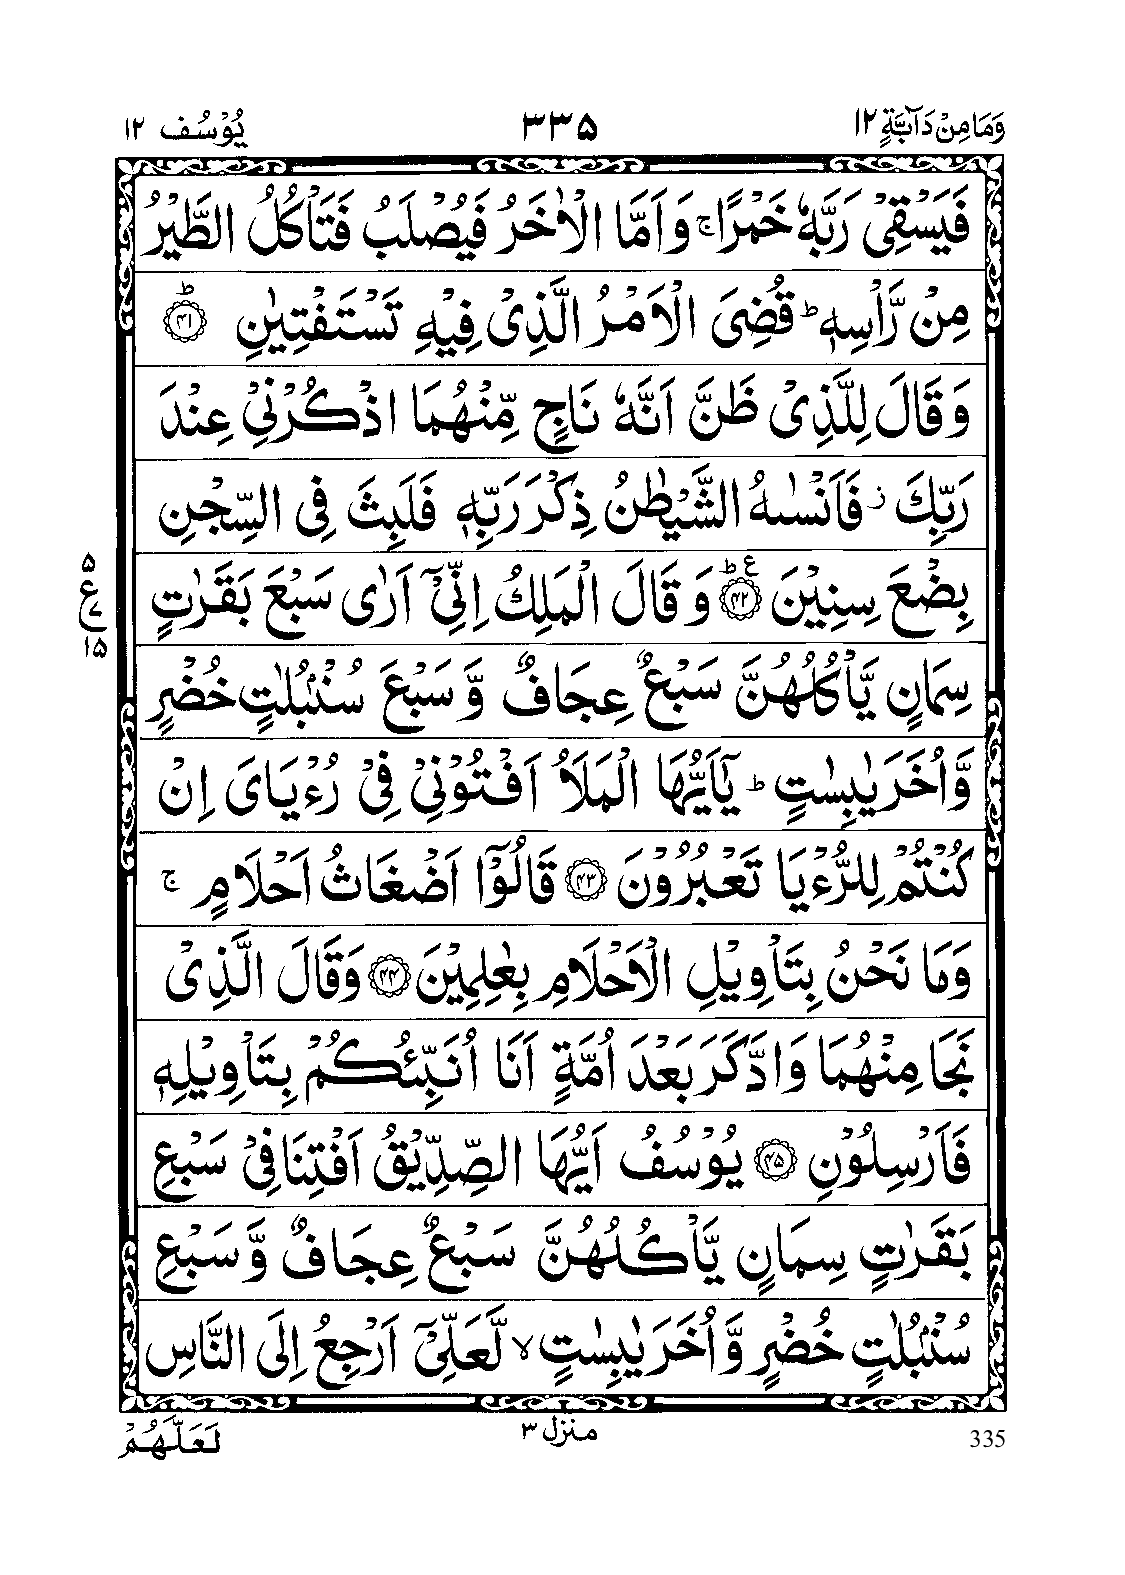 وَمَا مِنْ دَآبَّةٍ ۱۲ ۳۳۵ يُوْسُف ۱۲
فَيَسْقِىْ رَبَّهٗ خَمْرًا ۚ وَاَمَّا الْاٰخَرُ فَيُصْلَبُ فَتَاْكُلُ الطَّيْرُ
مِنْ رَّاْسِهٖ ؕ قُضِىَ الْاَمْرُ الَّذِىْ فِيْهِ تَسْتَفْتِيٰنِ ؕ ﴿۴۱﴾
وَقَالَ لِلَّذِىْ ظَنَّ اَنَّهٗ نَاجٍ مِّنْهُمَا اذْكُرْنِىْ عِنْدَ
رَبِّكَ ز فَاَنْسٰىهُ الشَّيْطٰنُ ذِكْرَ رَبِّهٖ فَلَبِثَ فِى السِّجْنِ
بِضْعَ سِنِيْنَ ؕع ﴿۴۲﴾ وَقَالَ الْمَلِكُ اِنِّىْۤ اَرٰى سَبْعَ بَقَرٰتٍ
۵
ع
۱۵
سِمَانٍ يَّاْكُلُهُنَّ سَبْعٌ عِجَافٌ وَّسَبْعَ سُنْۢبُلٰتٍ خُضْرٍ
وَّاُخَرَ يٰبِسٰتٍ ؕ يٰۤاَيُّهَا الْمَلَاُ اَفْتُوْنِىْ فِىْ رُءْيَاىَ اِنْ
كُنْتُمْ لِلرُّءْيَا تَعْبُرُوْنَ ﴿۴۳﴾ قَالُوْۤا اَضْغَاثُ اَحْلَامٍ ۚ
وَمَا نَحْنُ بِتَاْوِيْلِ الْاَحْلَامِ بِعٰلِمِيْنَ ﴿۴۴﴾ وَقَالَ الَّذِىْ
نَجَا مِنْهُمَا وَادَّكَرَ بَعْدَ اُمَّةٍ اَنَا اُنَبِّئُكُمْ بِتَاْوِيْلِهٖ
فَاَرْسِلُوْنِ ﴿۴۵﴾ يُوْسُفُ اَيُّهَا الصِّدِّيْقُ اَفْتِنَا فِىْ سَبْعِ
بَقَرٰتٍ سِمَانٍ يَّاْكُلُهُنَّ سَبْعٌ عِجَافٌ وَّسَبْعِ
سُنْۢبُلٰتٍ خُضْرٍ وَّاُخَرَ يٰبِسٰتٍ ۙ لَّعَلِّىْۤ اَرْجِعُ اِلَى النَّاسِ
لَعَلَّهُمْ منزل ۳ 335